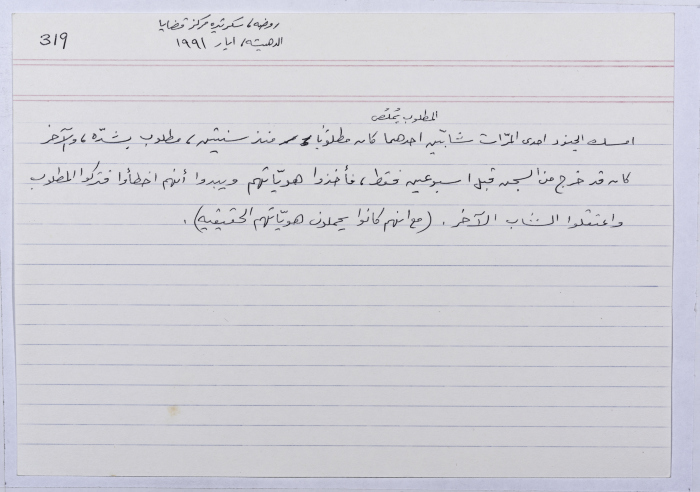 319
روضه، سكرتيره مركز قضايا
الدهيشه، ايار ١٩٩١
المطلوب يُملّص
امسك الجنود احدى المرّات شابّين احدهما كان مطلوبًا منذ سنتين، مطلوب بشدّه، والآخر
كان قد خرج من السجن قبل اسبوعين فقط، فأخذوا هويّاتهم ويبدوا أنهم اخطأوا فتركوا المطلوب
واعتقلوا الشاب الآخر. (مع انهم كانوا يحملون هويّاتهم الحقيقيه).